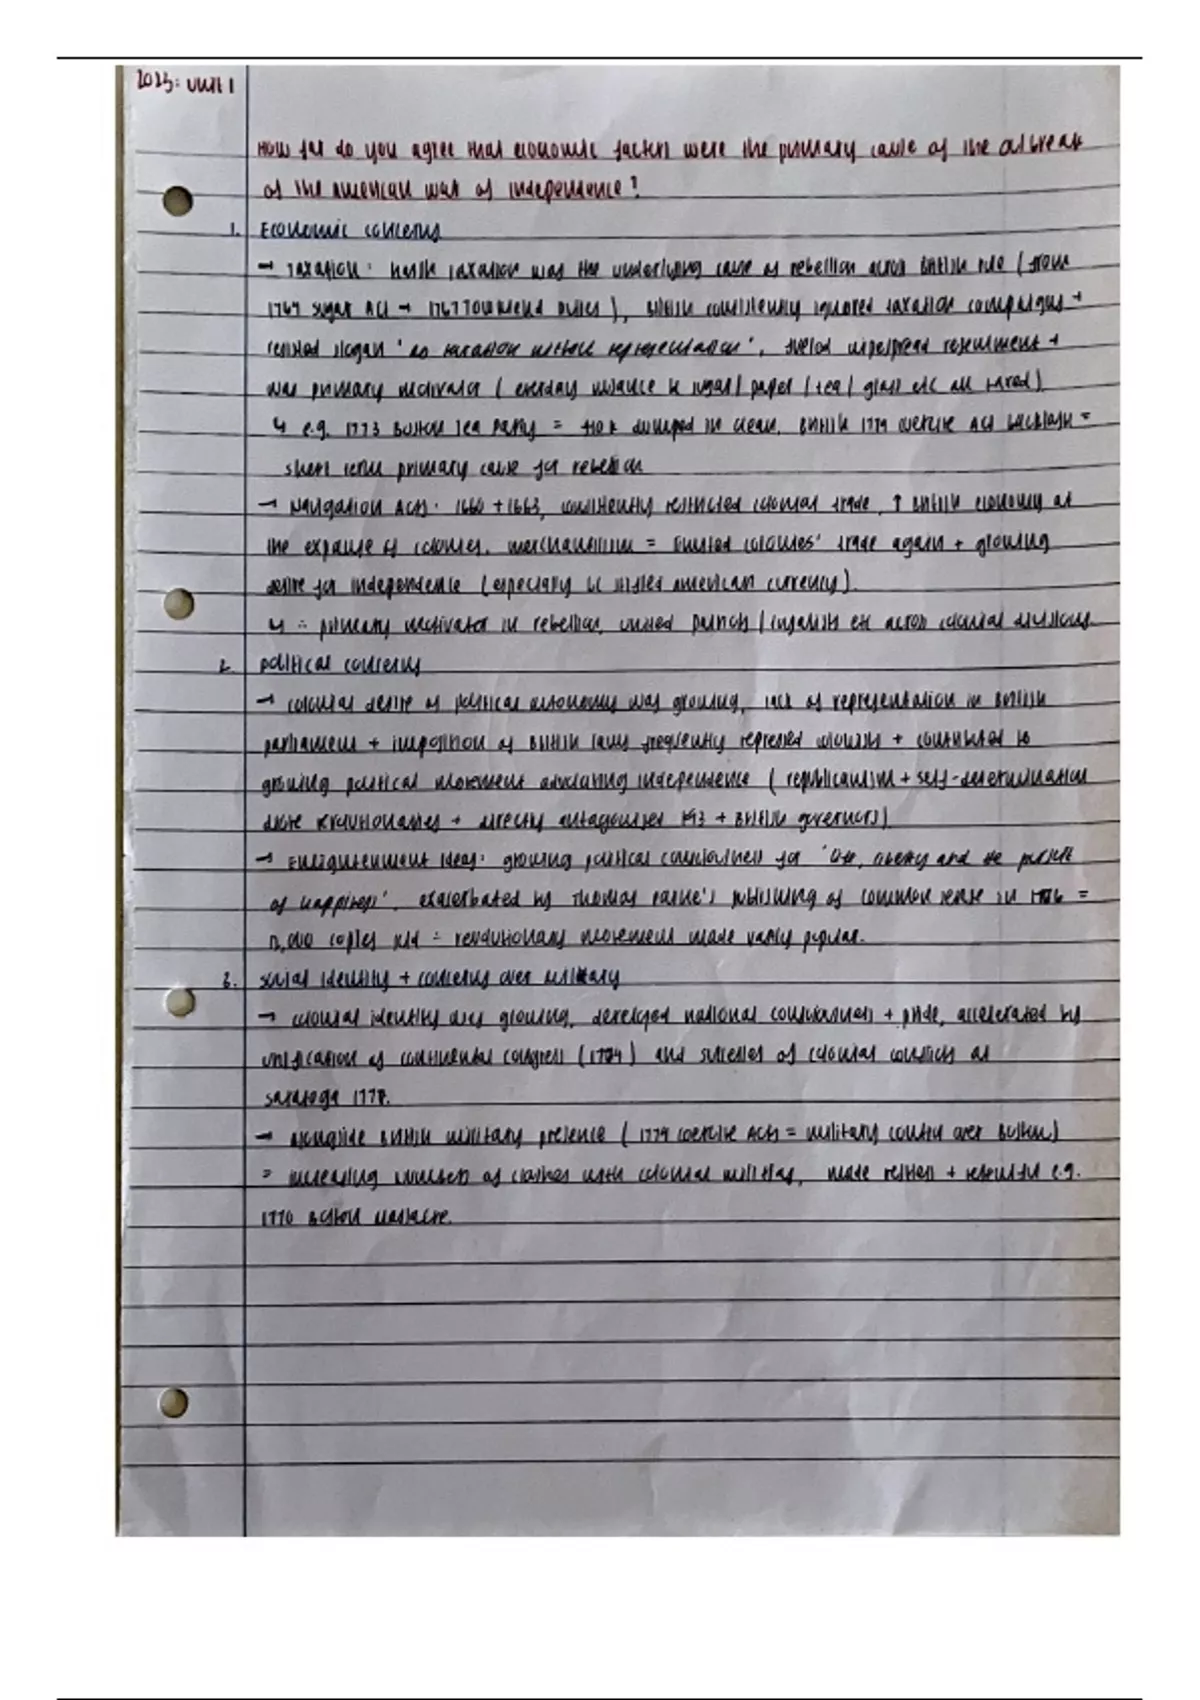 2023: Unit 1
How far do you agree that economic factors were the primary cause of the outbreak
of the american war of independence?
1. Economic concerns
→ Taxation: harsh taxation was the underlying cause of rebellion across British rule (from
1764 Sugar Act → 1767 Townshend Duties), British consistently ignored taxation campaigns +
slogan 'no taxation without representation', fueled widespread resentment +
was primary motivator (everyday sugar/ paper / tea / glass etc all taxed)
↳ e.g. 1773 Boston Tea Party = dumped in ocean, British 1774 coercive Act backlash =
short term primary cause for rebellion
→ Navigation Acts: 1660 + 1663, consistently restricted colonial trade, ↑ British economy at
the expense of colonies. mercantilism = limited colonies' trade again + growing
desire for independence (especially bc american currency).
↳ ∴ primary motivator in rebellion, united patriots / loyalists etc across colonial divisions
2. political concerns
→ colonial desire of political autonomy was growing, lack of representation in British
parliament + imposition of British laws frequently repressed colonists + contributed to
growing political movement advocating independence (republicanism + self-determination
drove revolutionaries + directly antagonised + British governors)
→ Enlightenment ideas: growing political consciousness for 'life, liberty and the pursuit
of happiness', exacerbated by Thomas Paine's publishing of common sense in 1776 =
copies sold = revolutionary movement made vastly popular.
3. social identity + concerns over military
→ colonial identity was growing, developed national consciousness + pride, accelerated by
unification of continental congress (1774) and successes of colonial conflicts at
saratoga 1777.
→ alongside British military presence (1774 coercive Acts = military control over Boston)
= increasing numbers of clashes with colonial militias, made restless + resentful e.g.
1770 Boston Massacre.